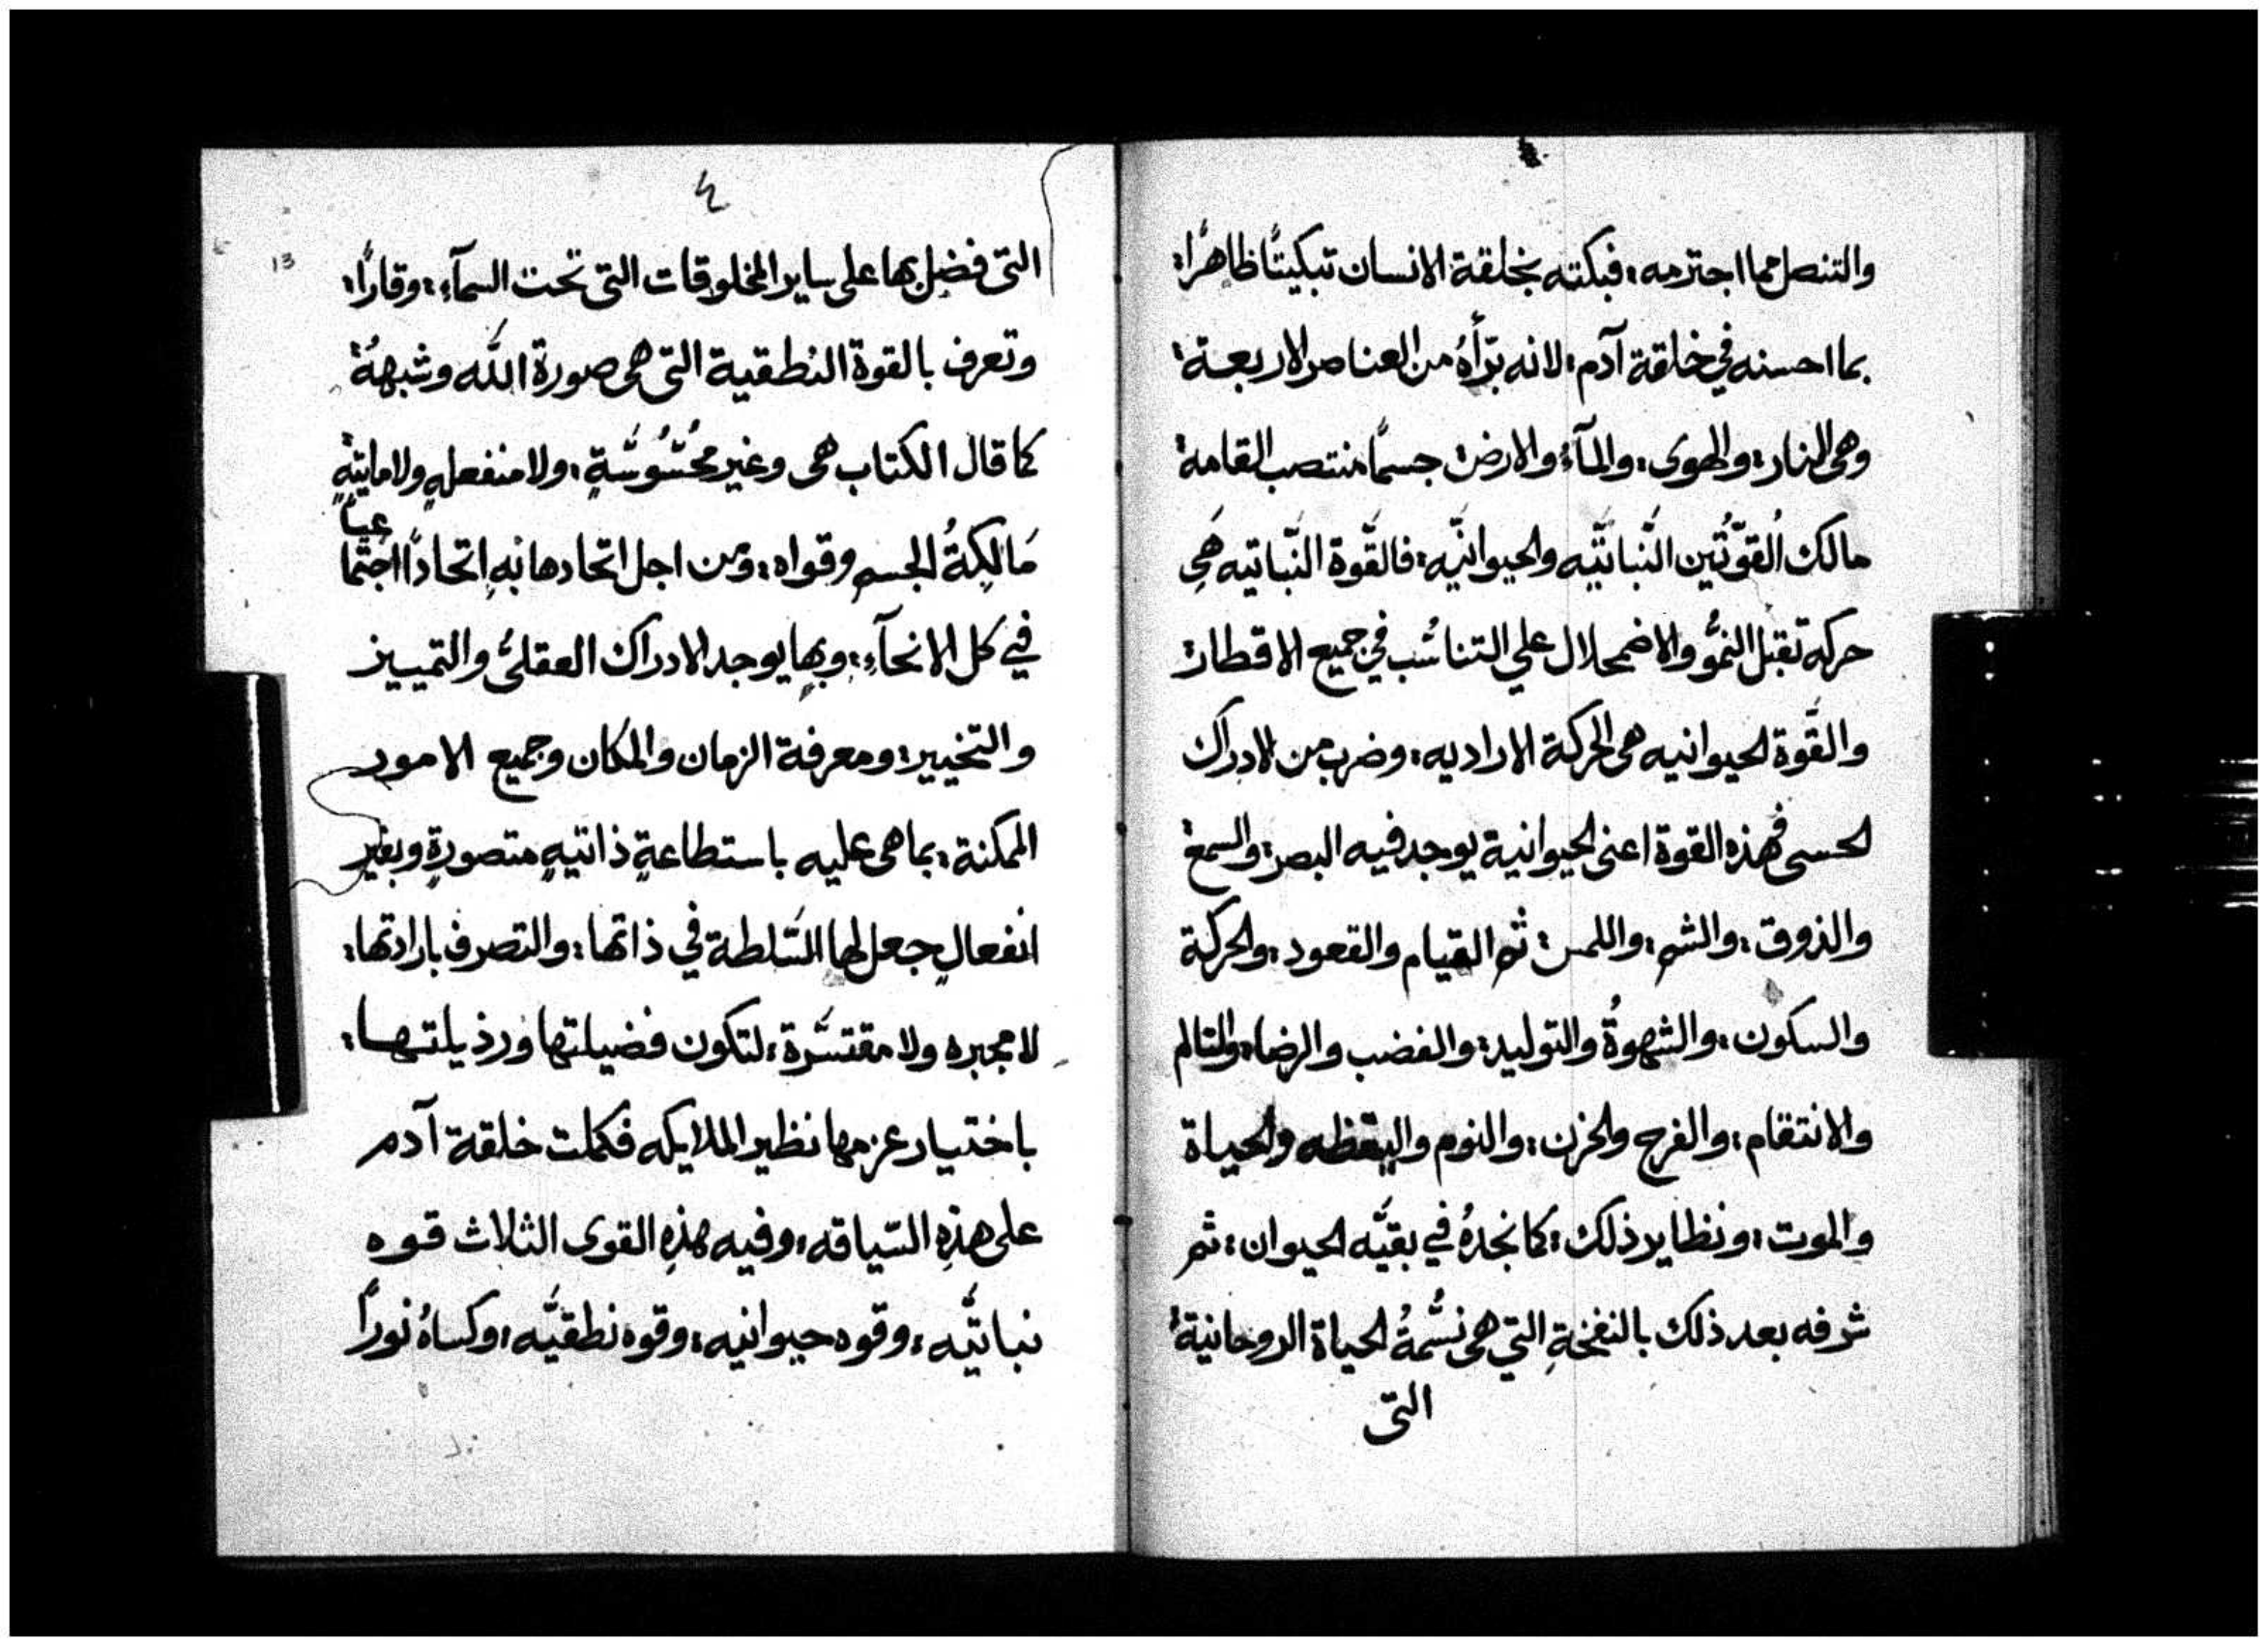 والتنصل مما اجترمه، فبكته بخلقة الانسان تبكيتًا ظاهرًا:
بما احسنه في خلقة آدم: لانه برَأهُ من العناصر الاربعة:
وهى النار: والهوى: والمآء: والارض: جسمًا منتصب القامة:
مالك القوَّتين النَّباتيَّه والحيوانيَّه: فالقَّوة النَّباتيه هَي
حركه تقبل النُموُّ والاضمحلال علي التناسُب في جميع الاقطار:
والقَّوة الحيوانيه هى الحركة الاراديه: وضرب من الادراك
الحسى فهذه القوة اعنى الحيوانية يوجد فيه البصر: والسمع:
والذوق: والشم: واللمس: ثم القيام والقعود: والحركة
والسكون: والشهوةُ والتوليد: والغضب والرضا، والتالم
والانتقام: والفرح والحزن: والنوم واليقظه والحياة
والموت: ونظاير ذلك: كما نجدهُ في بقيَّه الحيوان: ثم
شرفه بعد ذلك بالنفخةِ التي هى نسَّمةُ الحياة الروحانية:
التى
٤
13
التى فضل بها على ساير المخلوقات التى تحت السمآءِ: وقارًا:
وتعرف بالقوة النطقية التى هى صورة اللَّه وشبههُ:
كما قال الكتاب هى وغير محُسُّوسَّةٍ: ولا منفعلهٍ ولا مايتهٍ
مَالِكةُ الجسم وقواه: ومن اجل اتحادها بهِ اتحادًا اجتما
عيًا
في كل الانحآءِ: وبها يوجد الادراك العقلىُّ والتمييز
والتخيير: ومعرفة الزمان والمكان وجميع الامور
الممكنة: بما هى عليه باستطاعةٍ ذاتيهٍ متصورةٍ وبغير
انفعالٍ جعل لها السَّلطة في ذاتها: والتصرف بارادتها:
لا مجبره ولا مقتسَّرة: لتكون فضيلتها ورذيلتها:
باختيار عزمها نظير الملايكه فكملت خلقة آدم
على هذِهِ السّياقه: وفيه هذِهِ القوى الثلاث قوه
نباتيَّه: وقوه حيوانيه: وقوه نطقيَّه: وكساهُ نورًا